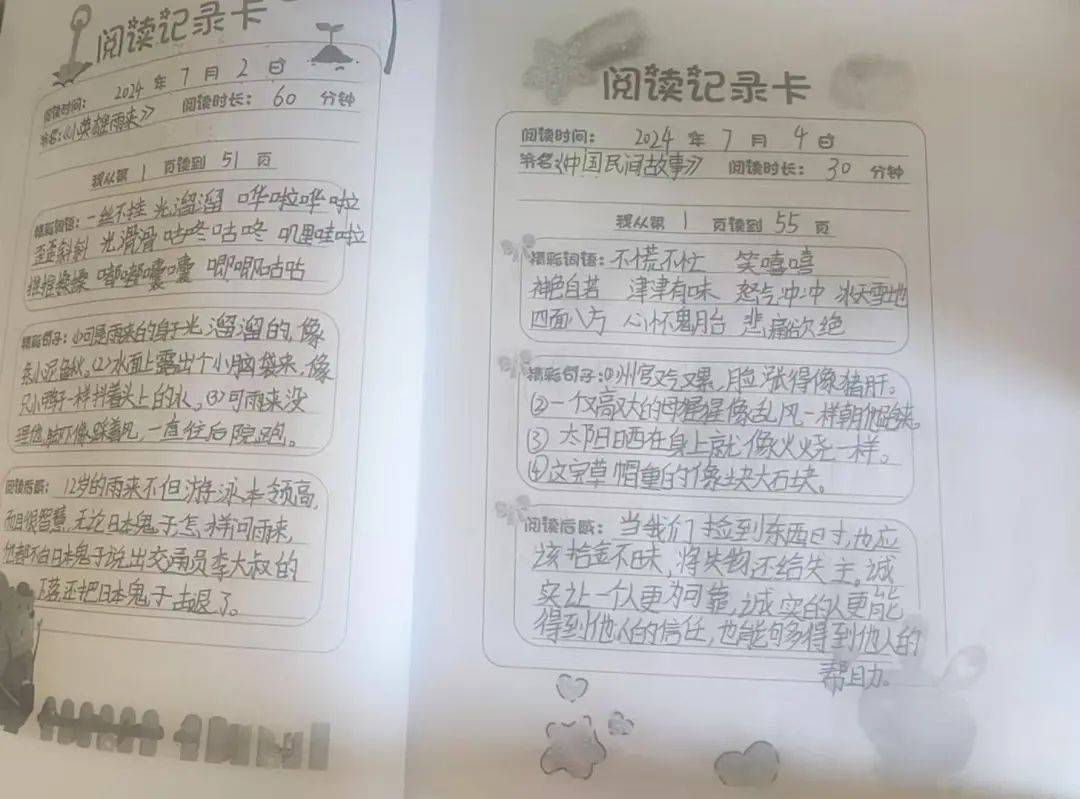 阅读记录卡
阅读时间: 2024 年 7 月 2 日
书名:《小英雄雨来》 阅读时长: 60 分钟
我从第 1 页读到 51 页
精彩词语: 一丝不挂 光溜溜 哗啦哗啦
歪歪斜斜 光滑滑 咕咚咕咚 叽里哇啦
推推搡搡 嘟嘟囔囔 唧唧咕咕
精彩句子: ①可是雨来的身子光溜溜的,像
条小泥鱼秋。(2)水面上露出个小脑袋来,像
只小鸭子一样抖着头上的水。(3)可雨来没
理他,脚下像踩着风,一直往后院跑。
阅读后感: 12岁的雨来不但游泳本领高,
而且很智慧,无论日本鬼子怎样问雨来,
他都不向日本鬼子说出交通员李大叔的
下落还把日本鬼子击退了。
阅读记录卡
阅读时间: 2024 年 7 月 4 日
书名:《中国民间故事》 阅读时长: 30 分钟
我从第 1 页读到 55 页
精彩词语: 不慌不忙 笑嘻嘻
神色自若 津津有味 怒气冲冲 冰天雪地
四面八方 心怀鬼胎 悲痛欲绝
精彩句子: ①州官又气又累,脸涨得像猪肝。
②一个又高又大的母猩猩像乱风一样朝他跑来。
③ 太阳晒在身上就像火烧一样。
④这宝草帽重的像块大石块。
阅读后感: 当我们捡到东西时,也应
该拾金不昧,将失物还给失主。诚
实让一个人更为可靠,诚实的人更能
得到他人的信任,也能够多得到他人的
帮助。